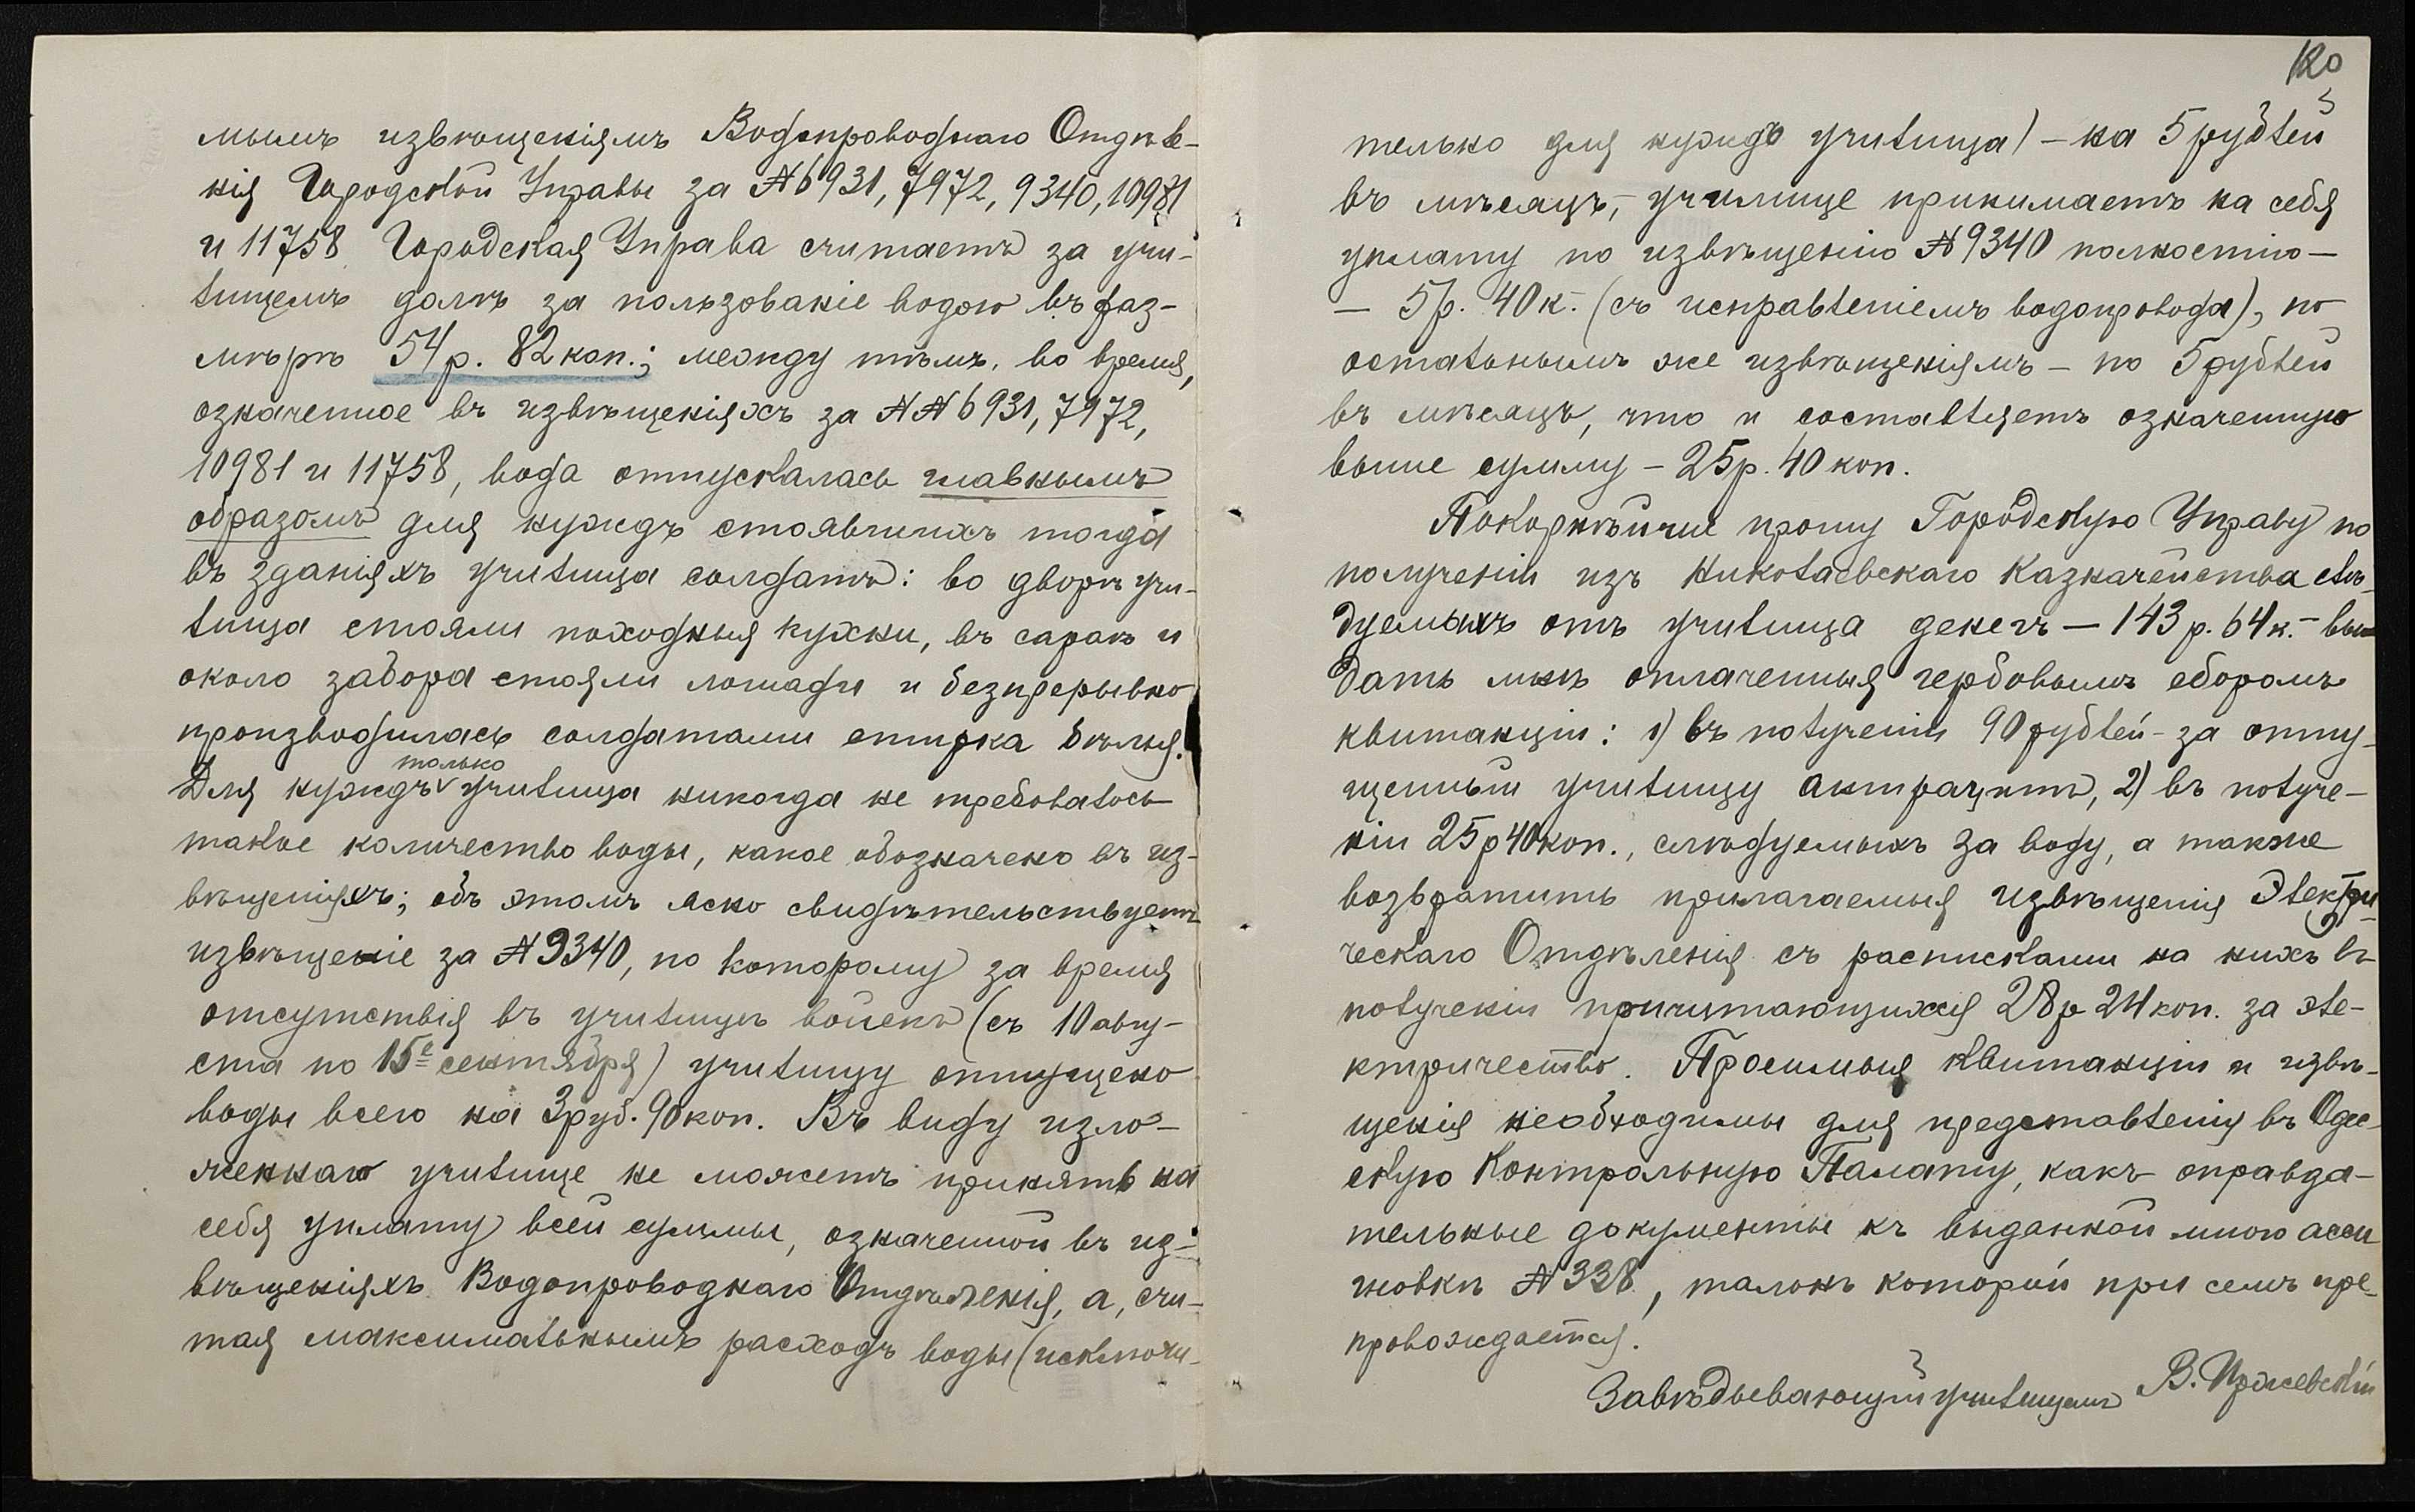 мымъ извѣщеніямъ Водопроводнаго Отдѣле-
нія Городской Управы за №6931, 7972, 9340, 10981
и 11758 Городская Управа считаетъ за учи-
лищемъ долгъ за пользованіе водою въ раз-
мѣрѣ 54 р. 82 коп.; между тѣмъ, во время,
означенное въ извѣщеніяхъ за №№6931, 7972,
10981 и 11758, вода отпускалась главнымъ
образомъ для нуждъ стоявшихъ тогда
въ зданіяхъ училища солдатъ: во дворѣ учи-
лища стояли походныя кухни, въ сараѣ и
около забора стояли лошади и безпрерывно
производилась солдатами стирка бѣлья.
только
Для нуждъ училища никогда не требовалось
такое количество воды, какое обозначено въ из-
вѣщеніяхъ; объ этомъ ясно свидѣтельствуетъ
извѣщеніе за №9340, по которому за время
отсутствія въ училищѣ войскъ (съ 10 авгу-
ста по 15е сентября) училищу отпущено
воды всего на 3 руб. 90 коп. Въ виду изло-
женнаго училище не можетъ принять на
себя уплату всей суммы, означенной въ из-
вѣщеніяхъ Водопроводнаго Отдѣленія, а, счи-
тая максимальнымъ расходъ воды (исключи-
120
тельно для нуждъ училища) - на 5 рублей
въ мѣсяцъ, - училище принимаетъ на себя
уплату по извѣщенію №9340 полностію -
- 5 р. 40 к. - (съ исправленіемъ водопровода), по
остальнымъ же извѣщеніямъ - по 5 рублей
въ мѣсяцъ, что и составляетъ означенную
выше сумму - 25 р. 40 коп.
Покорнѣйше прошу Городскую Управу по
полученіи изъ Николаевскаго Казначейства слѣ-
дуемыхъ отъ училища денегъ - 143 р. 64 к. - вы-
дать мнѣ оплаченныя гербовымъ сборомъ
квитанціи: 1) въ полученіи 90 рублей - за отпу-
щенный училищу антрацитъ, 2) въ получе-
ніи 25 р 40 коп., слѣдуемыхъ за воду, а также
возвратить прилагаемыя извѣщенія Электри-
ческаго Отдѣленія съ расписками на нихъ въ
полученіи причитающихся 28 р 24 коп. за эле-
ктричество. Просимыя квитанціи и извѣ-
щенія необходимы для представленія въ Одес-
скую Контрольную Палату, какъ оправда-
тельные документы къ выданной мною асси
гновкѣ №338, талонъ которой при семъ пре-
провождается.
Завѣдывающій училищемъ